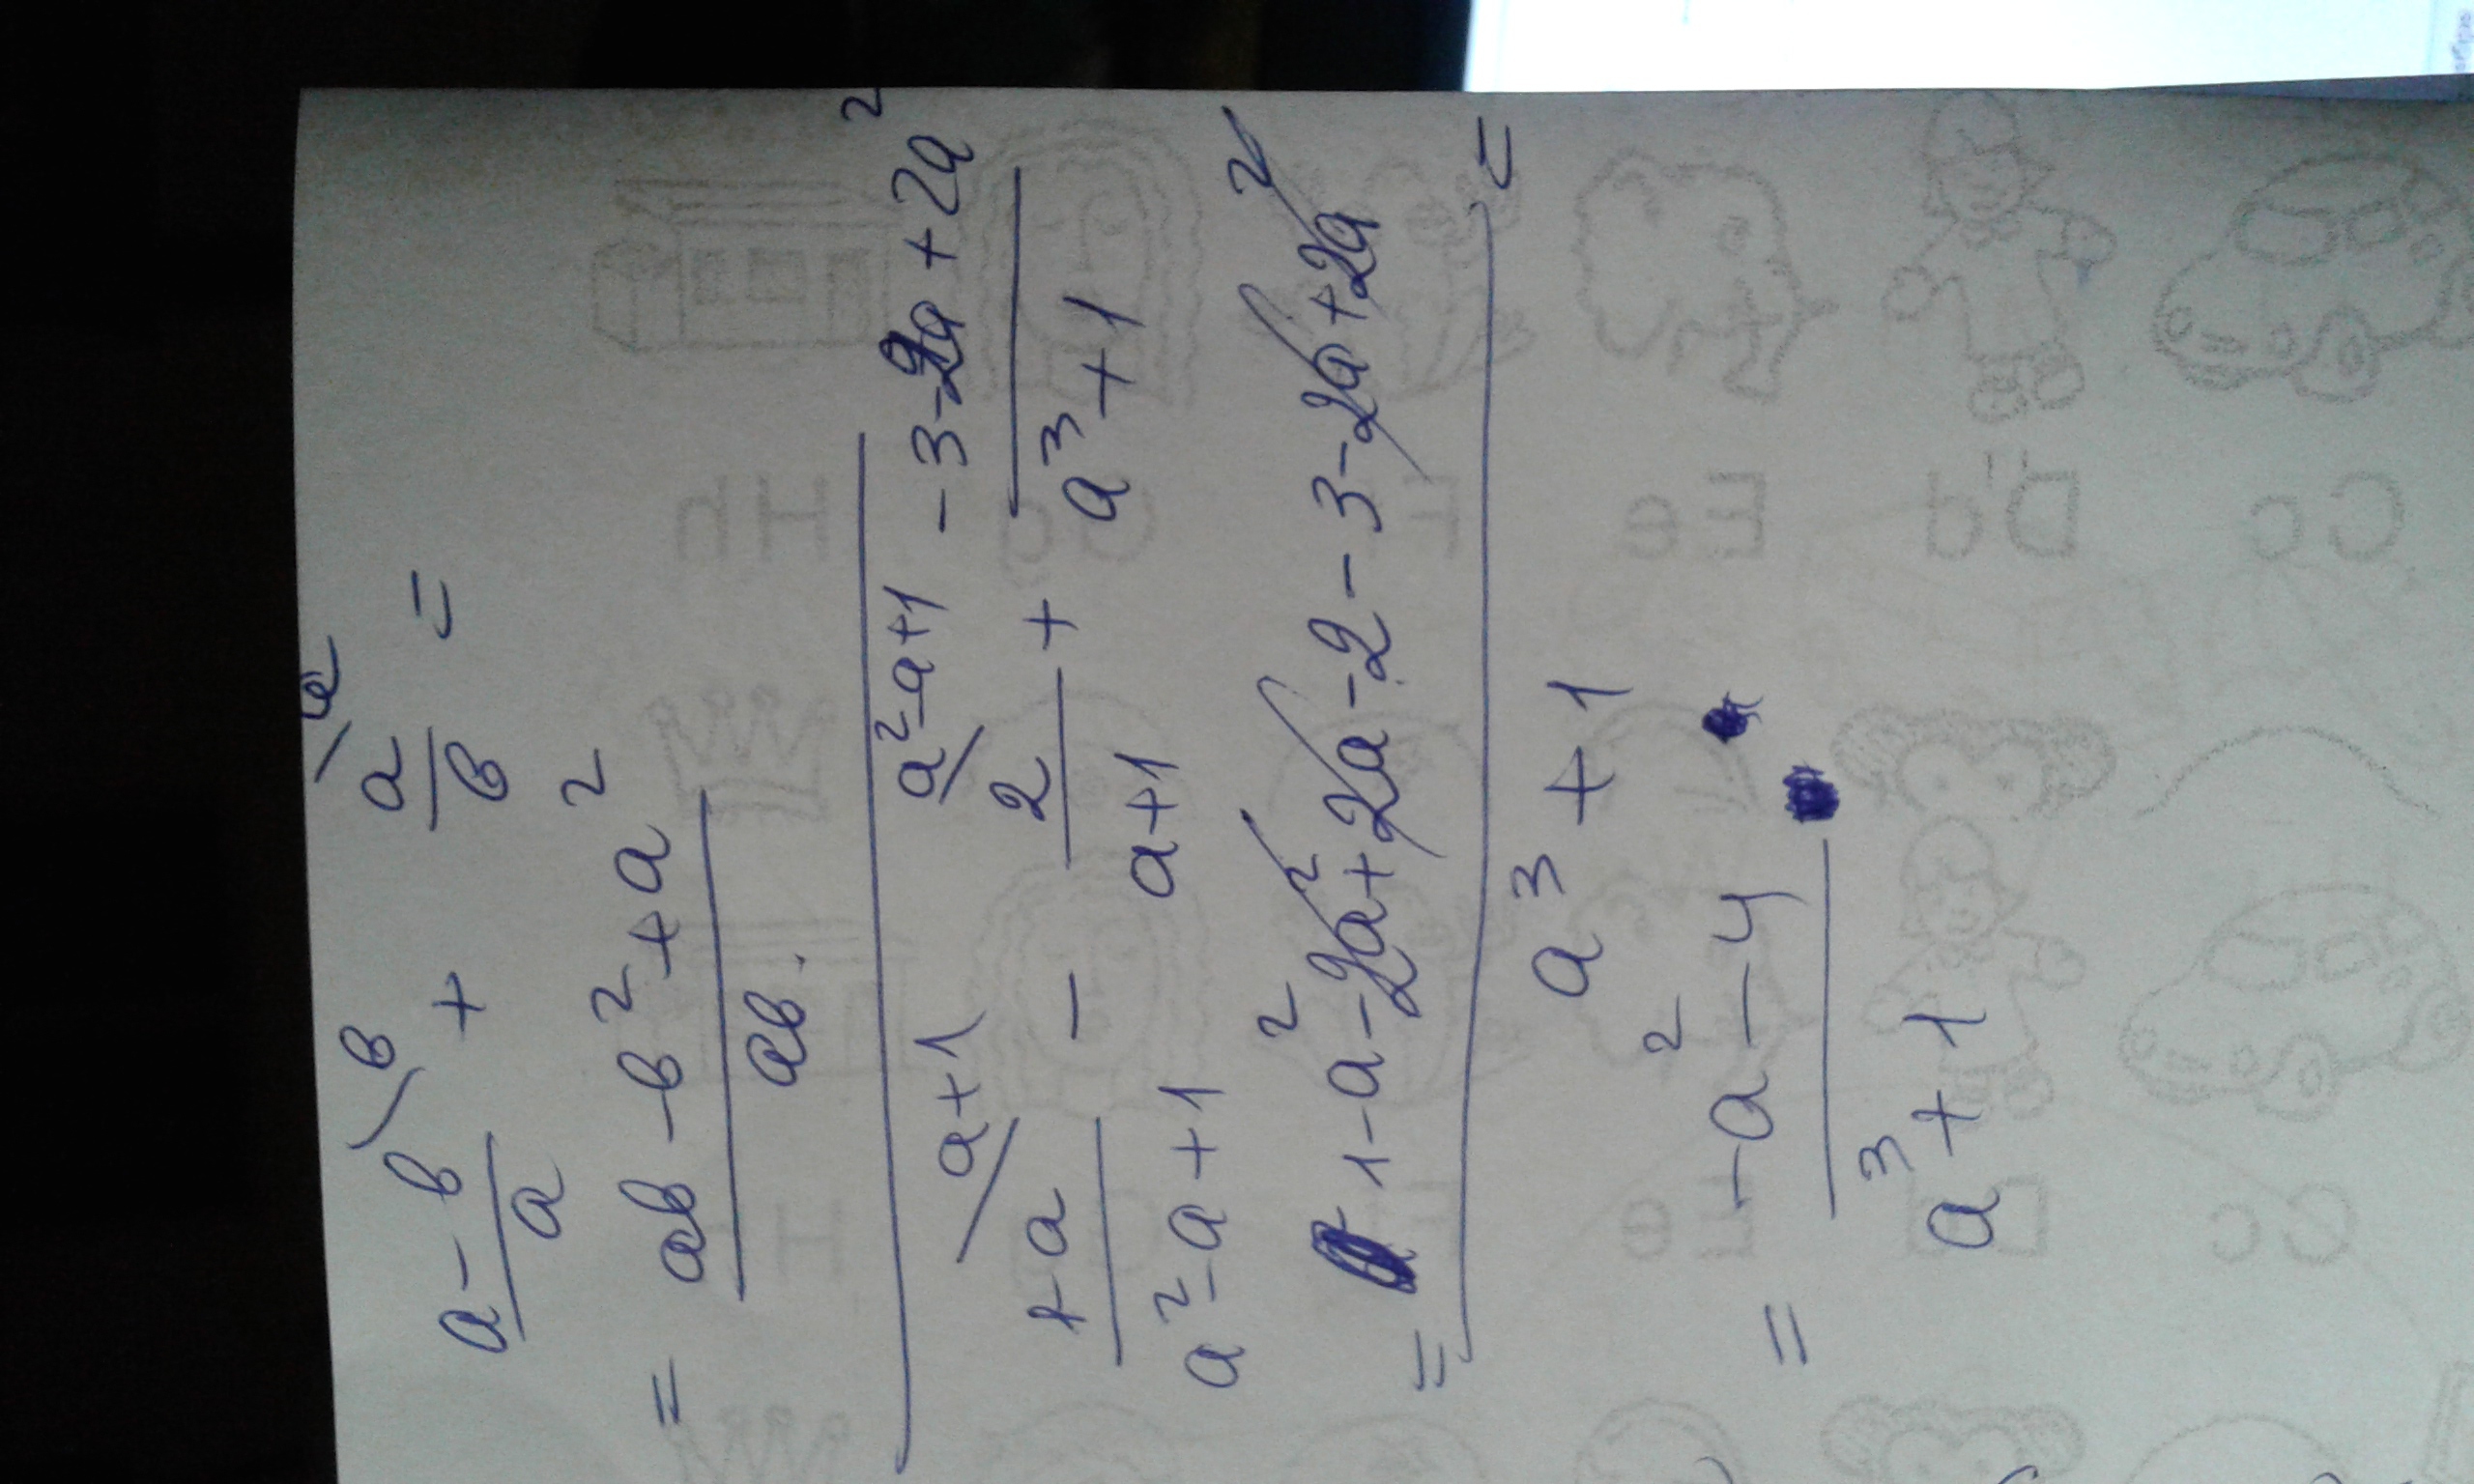 a-b/a \b + a/b \a =
= ab-b²+a² / ab
1-a/a²-a+1 /a+1 - 2/a+1 /a²-a+1 + -3-2a+2a²/a³+1
= 1-a²-2a²+2a-2-3-2a+2a² / a³+1 =
= -a²-4 / a³+1
H h
F f
E e
D d
C c